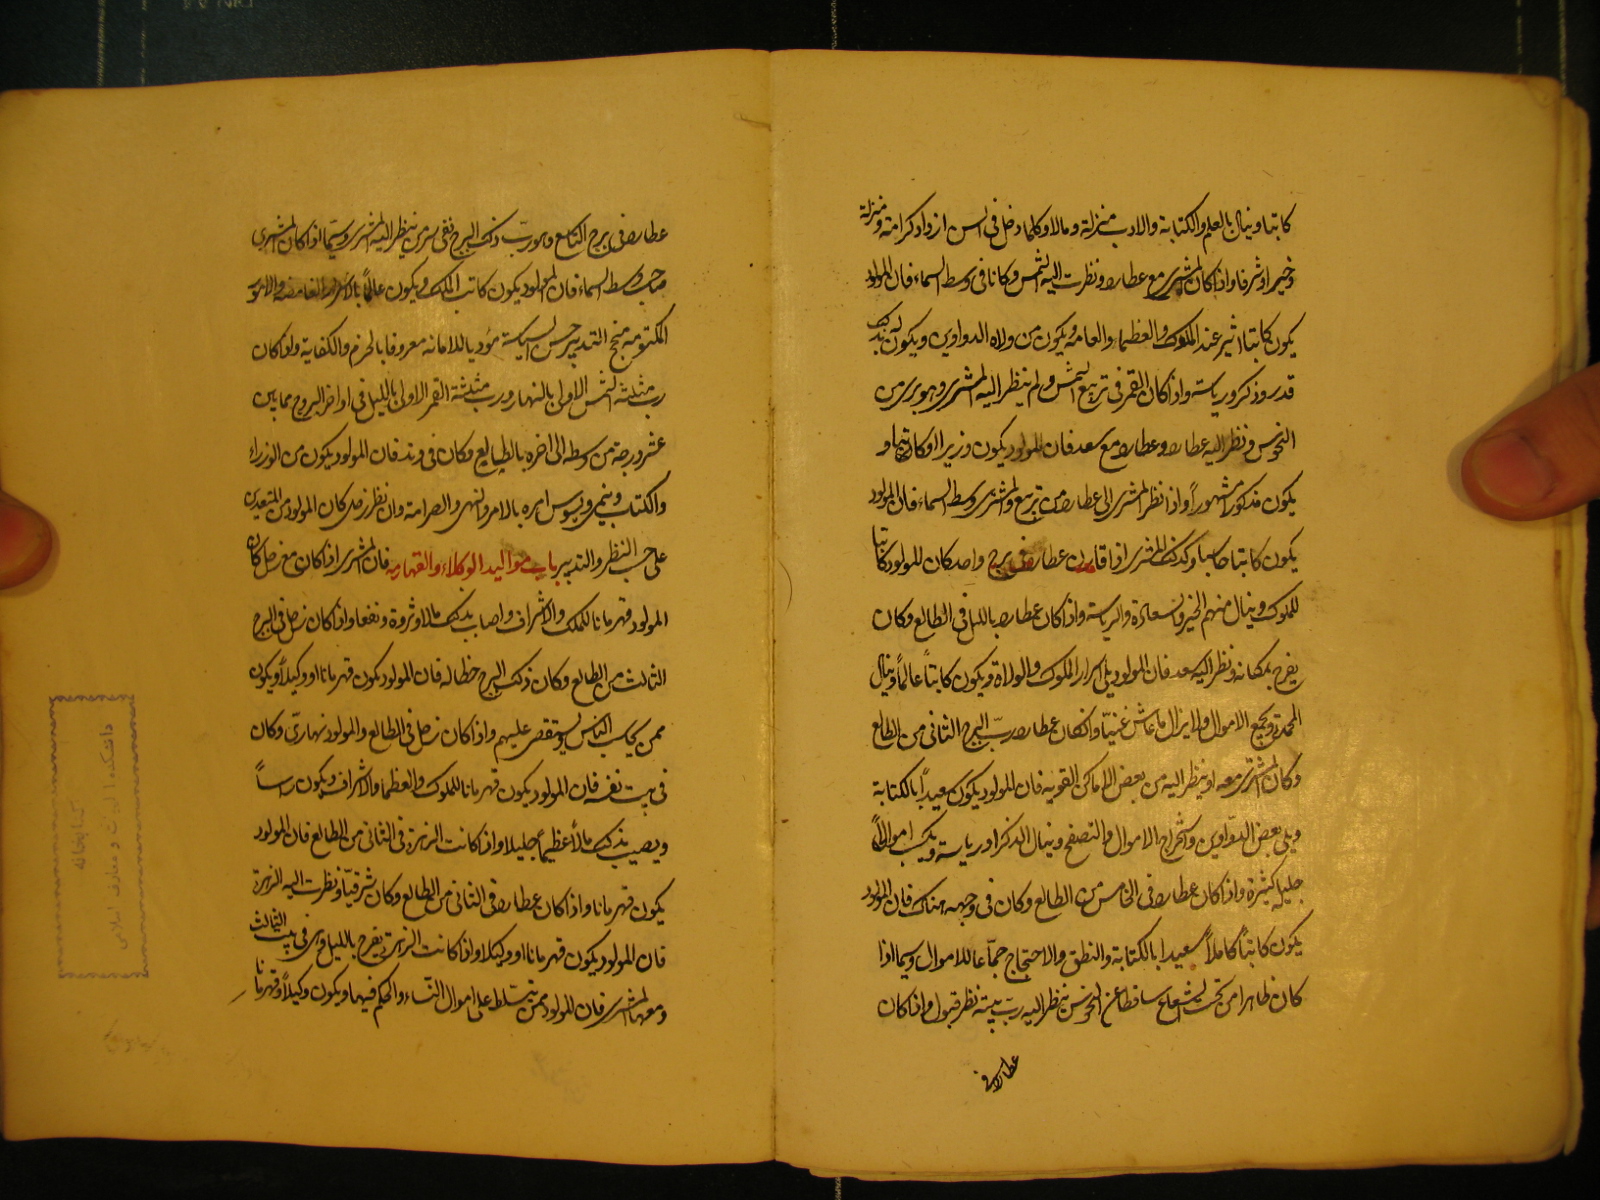 كاتبا وينال بالعلم والكتابة والادب منزلة ومالا وكلما دخل فى السن ازداد كرامة ومنزلة
وخيرا وشرفا واذا كان المشترى مع عطارد ونظرت اليه الشمس وكانا فى وسط السماء فان المولود
يكون كاتبا اثيرا عند الملوك والعظماء والعامه ويكون من ولاه الدواوين ويكون له بذلك
قدر وذكر ورياسة واذا كان القمر فى تربيع الشمس ولم ينظر اليه المشترى وهو برى من
النحوس ونظر اليه عطارد وعطارد مع سعد فان المولود يكون وزيرا او كاتبا و
يكون مذكورا مشهوراً واذا نظر المشترى الى عطارد من تربيع والمشترى وسط السماء فان المولود
يكون كاتبا حاسبا وكذلك المشترى اذا قارن عطارد فى برج واحد كان المولود كاتبا
للملوك وينال منهم الخير والسعادة والرياسة واذا كان عطارد بالليل فى الطالع وكان
يفرح بمكانه ونظر اليه سعد فان المولود يلى اسرار الملوك والولاة ويكون كاتباً عالماً وينال
المحمدة ويجمع الاموال ولا يزال ما عاش غنيّا وان كان عطارد ربّ البرج الثانى من الطالع
وكان المشترى معه او ينظر اليه من بعض الاماكن القويه فان المولود يكون سعيداً بالكتابة
ويلى بعض الدواوين واستخراج الاموال والتصفح وينال الذكر ورياسة ويكسب اموالاً
جليلة كثيرة واذا كان عطارد فى الخامس من الطالع وكان فى وجهه هناك فان المولود
يكون كاتباً كاملاً سعيدا بالكتابة والنطق والاحتجاج جمّاعا للاموال وسيما اذا
كان ظاهرا من تحت الشعاع ساقطا عن النحوس ينظر اليه ربّ بيته نظر قبول واذا كان
عطارد فى
عطارد فى برج التاسع وهو ربّ ذلك البرج نقى برى ينظر اليه المشترى وسيّما اذا كان المشترى
صاحب وسط السماء فان المولود يكون كاتب الملك ويكون عالماً بالاسرار الغامضه والامور
المكتومه منجح التدبير حسن السياسة مؤديا للامانه معروفا بالحزم والكفاية واذا كان
رب مثلثة الشمس الاولى بالنهار ورب مثلثة القمر الاولى بالليل فى اواخر البروج مما يلى
عشر درجة من وسطه الى اخره بالطالع وكان فى وتد فان المولود يكون من الوزراء
والكتاب وينمى ويسوس امره بالامر والنهى والصرامة وان نظر زحل كان المولود من المتعبدين
على حسب النظر والتدبير باب مواليد الوكلاء والقهارمه فان المشترى اذا كان مع زحل كان
المولود قهرمانا للملك والاشراف واصاب بذلك مالا وثروة ونفعا واذا كان زحل فى البرج
الثالث من الطالع وكان ذلك البرج حظا له فان المولود يكون قهرمانا او وكيلاً ويكون
ممن يحاسب الناس ويستقصى عليهم واذا كان زحل فى الطالع والمولود نهارىّ وكان
فى بيت نفسه فان المولود يكون قهرمانا للملوك والعظماء والاشراف ويكون رأساً
ويصيب بذلك مالاً عظيماً جليلا واذا كانت الزهرة فى الثانى من الطالع فان المولود
يكون قهرمانا واذا كان عطارد فى الثانى من الطالع وكان شرقيّا ونظرت اليه الزهرة
فان المولود يكون قهرمانا او وكيلا واذا كانت الزهرة تفرح بالليل وهى فى بيت الثالث
ومعها المشترى فان المولود ممن يتسلّط على اموال النساء والحكم فيها ويكون وكيلاً وقهرمانا
كتابخانه
دانشكده الهيات و معارف اسلامى